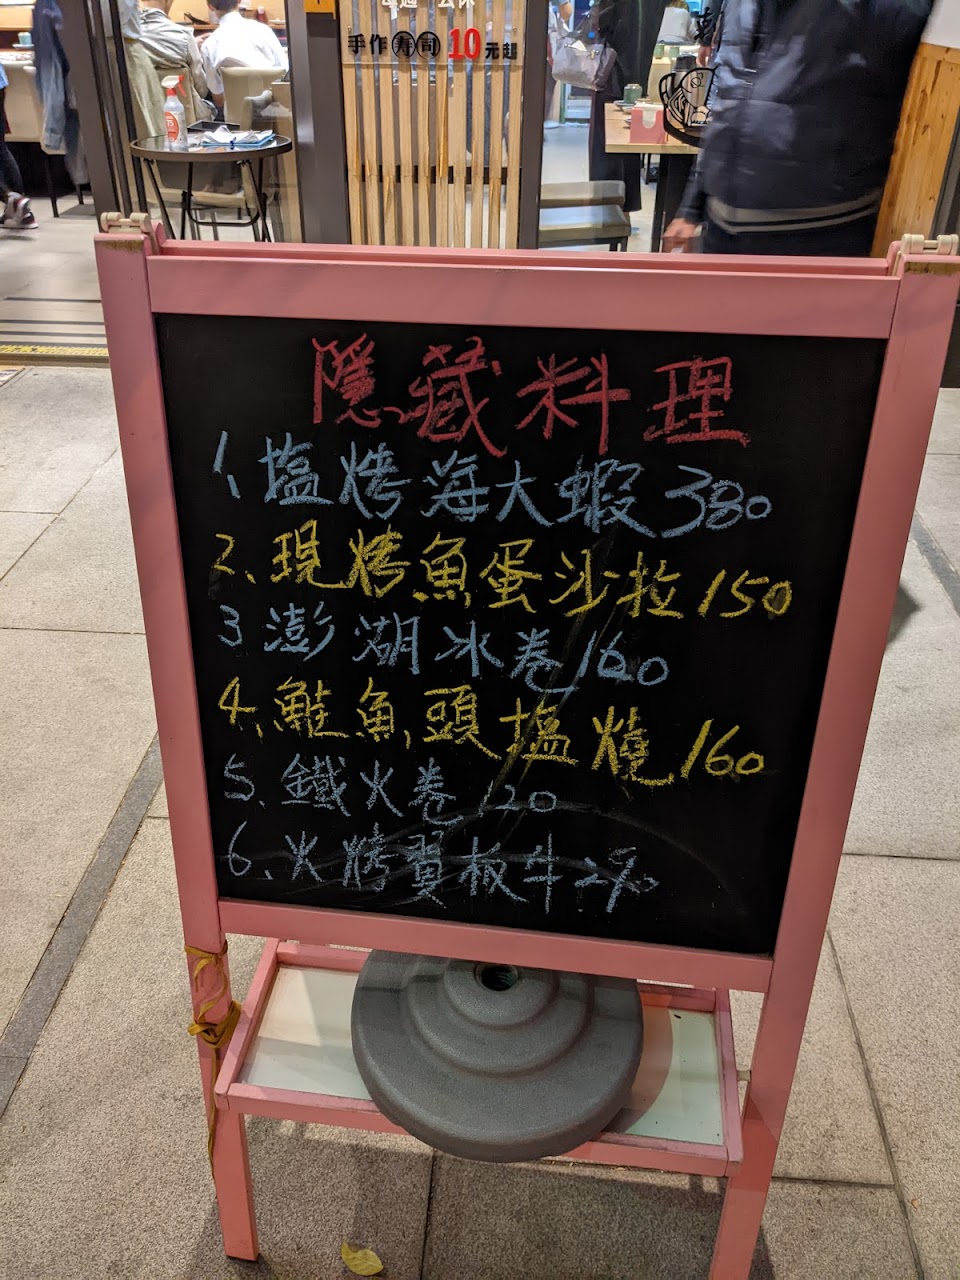 手作寿司10元起
隱藏料理
1、塩烤海大蝦380
2、現烤魚蛋沙拉150
3 澎湖冰卷160
4、鮭魚頭塩燒160
5、鐵火卷120
6、火烤翼板牛